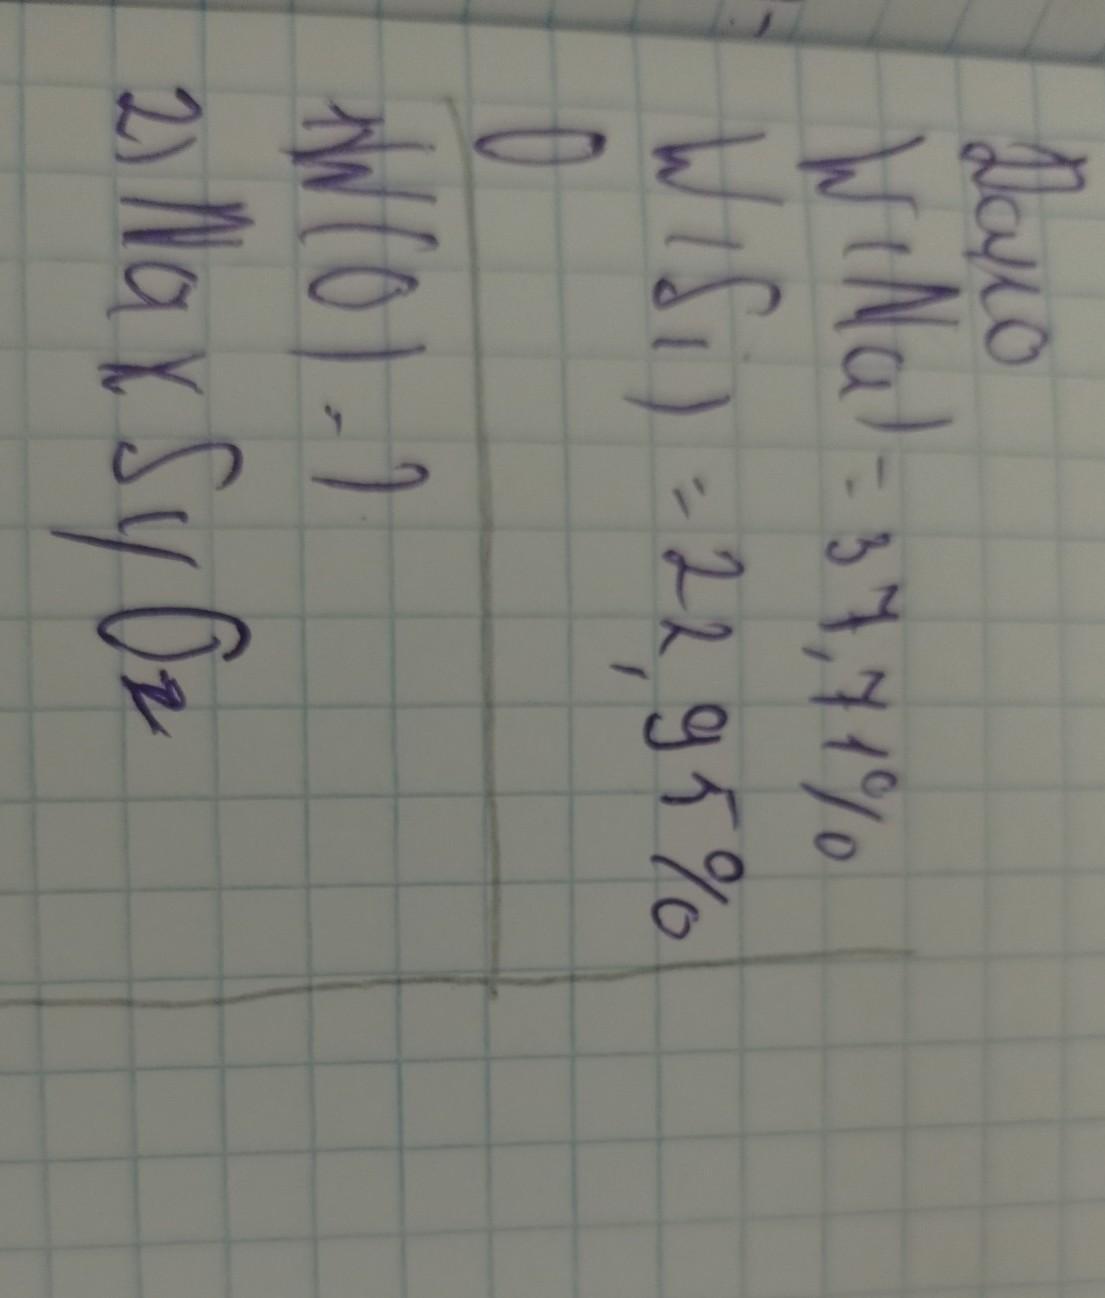 Дано
W(Na) = 37,71%
W(Si) = 22,95%
O
1) W(O) - ?
2) NaxSyOz